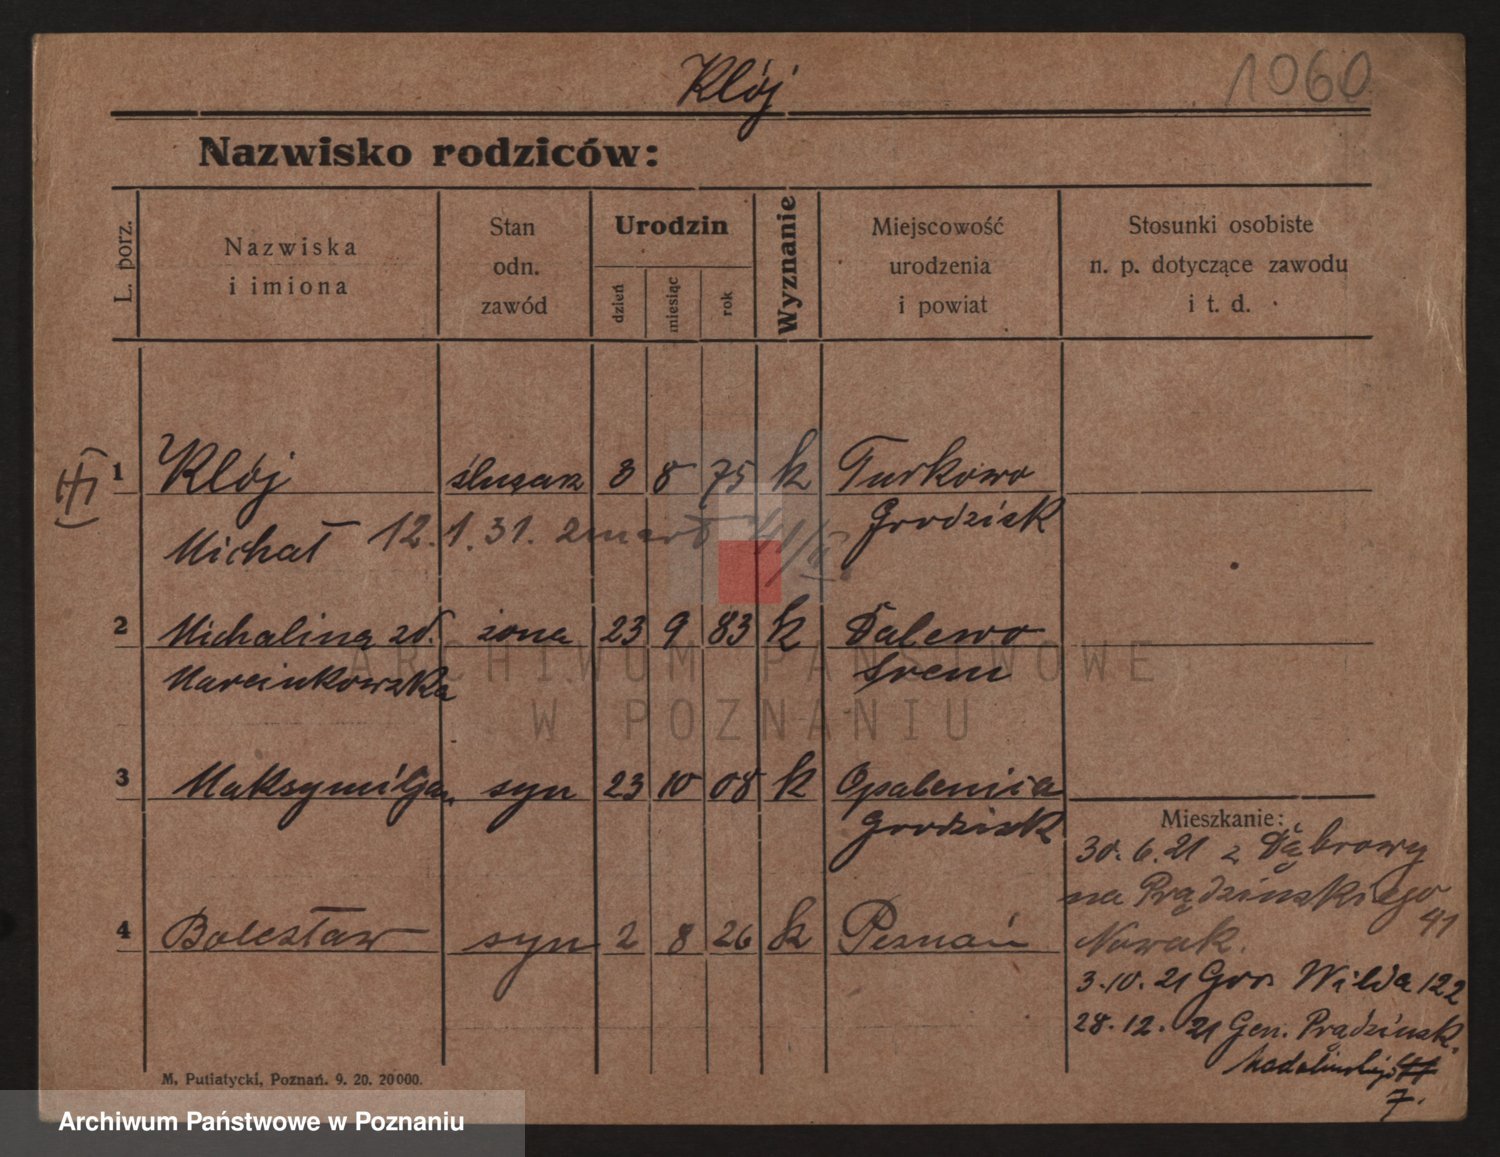 Klój
1060
Nazwisko rodziców:
L. porz.
Nazwiska
i imiona
Stan
odn.
zawód
Urodzin
dzień
miesiąc
rok
Wyznanie
Miejscowość
urodzenia
i powiat
Stosunki osobiste
n. p. dotyczące zawodu
i t. d.
1 Klój ślusarz 8 8 75 k Turkowo
Michał 12.1.31. zmarł Grodzisk
2 Michalina zd. żona 23 9 83 k Dalewo
Marcinkowska Śrem
3 Maksymiljan syn 23 10 08 k Opalenica
Grodzisk
4 Bolesław syn 2 8 26 k Poznań
Mieszkanie:
30.6.21 z Dąbrowy
na Prądzińskiego
41
Nowak.
3.10.21 Gór. Wilda 122
28.12.21 Gen. Prądzińsk.
Madalińskiego
7.
M. Putiatycki, Poznań. 9. 20. 20000.
ARCHIWUM PAŃSTWOWE
W POZNANIU
Archiwum Państwowe w Poznaniu